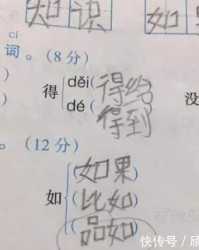 知识 如果
cí
词。(8分)
得 děi(得给
dé(得到
没
。(12分)
(如果)
如(比如)
(品如)
快传号/欣